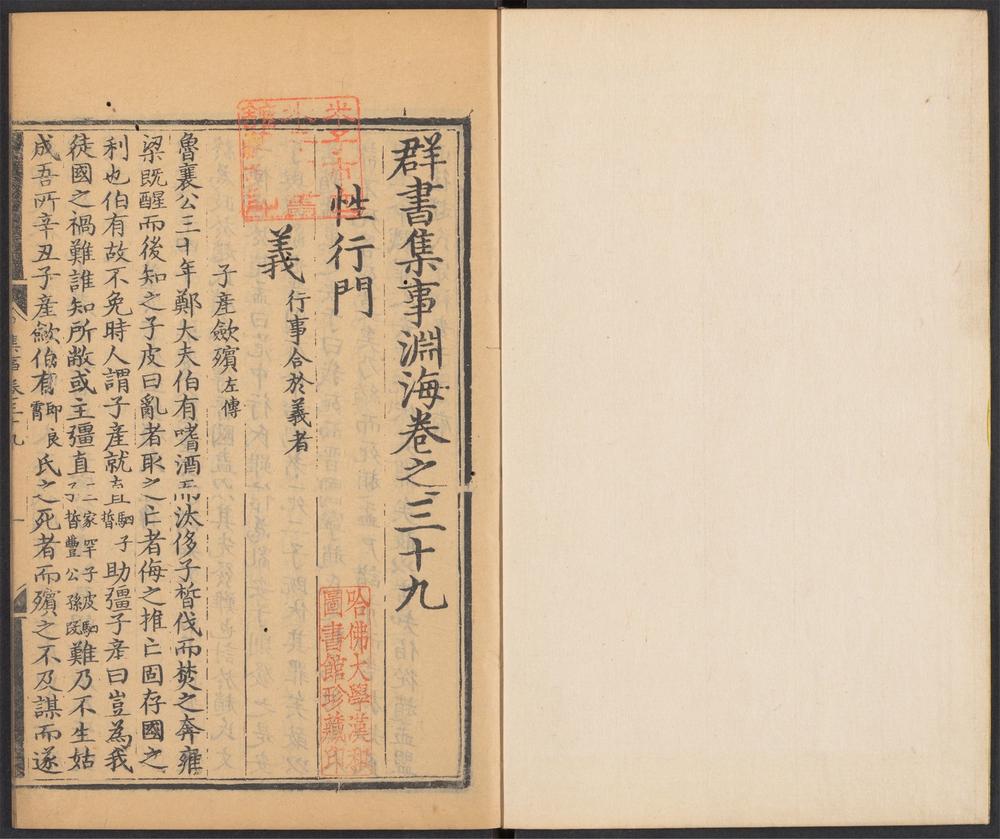 群書集事淵海卷之三十九
性行門
義 行事合於義者
子產斂殯 左傳
魯襄公三十年鄭大夫伯有嗜酒而汰侈子晳伐而焚之奔雍
梁既醒而後知之子皮曰亂者取之亡者侮之推亡固存國之
利也伯有故不免時人謂子產就直 駟子晳 助彊子產曰豈為我
徒國之禍難誰知所敝或主彊直 三家罕子皮駟子晳豐公孫段 難乃不生姑
成吾所辛丑子產斂伯有 良霄即 氏之死者而殯之不及謀而遂
集事卷三十九
一
哈佛大學漢和
圖書館珍藏印